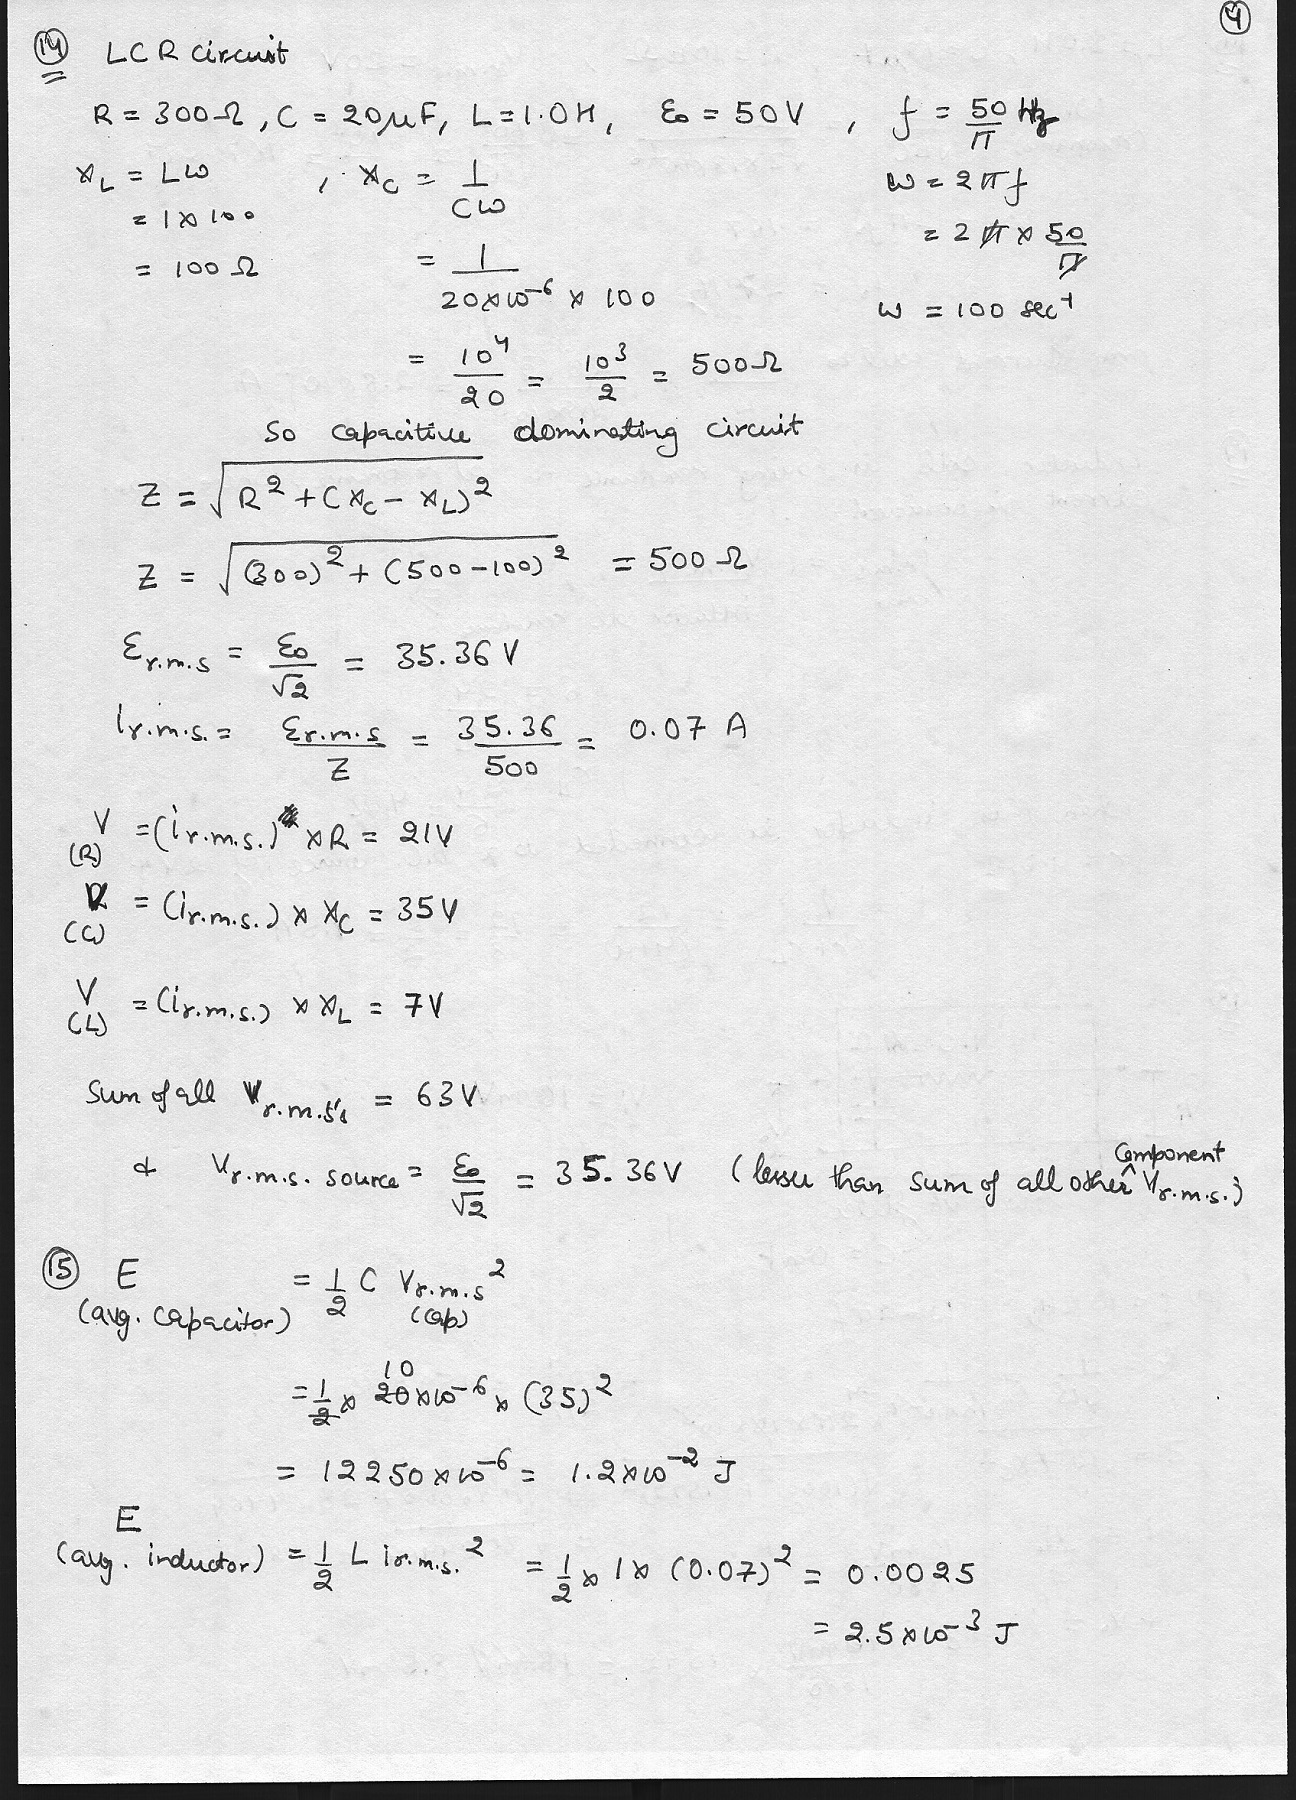 4
14 LCR circuit
R = 300Ω, C = 20μF, L = 1.0H, ε₀ = 50V, f = 50/π Hz
X_L = Lω , X_C = 1/Cω ω = 2πf
= 1 × 100 = 1/(20×10⁻⁶ × 100) = 2π × 50/π
= 100Ω ω = 100 sec⁻¹
= 10⁴/20 = 10³/2 = 500Ω
So capacitive dominating circuit
Z = √(R² + (X_C − X_L)²)
Z = √((300)² + (500 − 100)²) = 500Ω
ε_r.m.s = ε₀/√2 = 35.36 V
I_r.m.s. = ε_r.m.s/Z = 35.36/500 = 0.07 A
V(R) = (i_r.m.s.) × R = 21V
V(C) = (i_r.m.s.) × X_C = 35V
V(L) = (i_r.m.s.) × X_L = 7V
Sum of all V_r.m.s's = 63V
& V_r.m.s. source = ε₀/√2 = 35.36V (lesser than sum of all other component V_r.m.s.)
15 E (avg. capacitor) = 1/2 C V_r.m.s² (cap)
= 1/2 × 20 10 ×10⁻⁶ × (35)²
= 12250×10⁻⁶ = 1.2×10⁻² J
E (avg. inductor) = 1/2 L i_r.m.s.² = 1/2 × 1 × (0.07)² = 0.0025
= 2.5×10⁻³ J